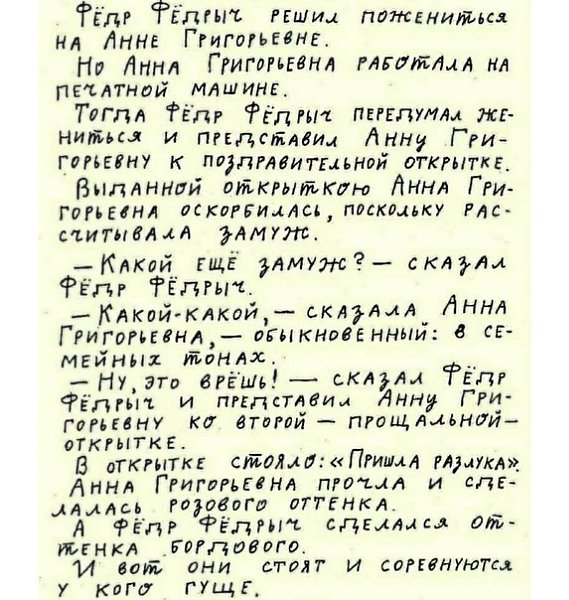 Фёдр Фёдрыч решил пожениться
на Анне Григорьевне.
Но Анна Григорьевна работала на
печатной машине.
Тогда Фёдр Фёдрыч передумал же-
ниться и представил Анну Гри-
горьевну к поздравительной открытке.
Выданной открыткою Анна Гри-
горьевна оскорбилась, поскольку рас-
считывала замуж.
— Какой ещё замуж? — сказал
Фёдр Фёдрыч.
— Какой-какой, — сказала Анна
Григорьевна, — обыкновенный: в се-
мейных тонах.
— Ну, это врёшь! — сказал Фёдр
Фёдрыч и представил Анну Гри-
горьевну ко второй — прощальной —
открытке.
В открытке стояло: «Пришла разлука».
Анна Григорьевна прочла и сде-
лалась розового оттенка.
А Фёдр Фёдрыч сделался от-
тенка бордового.
И вот они стоят и соревнуются
у кого гуще.